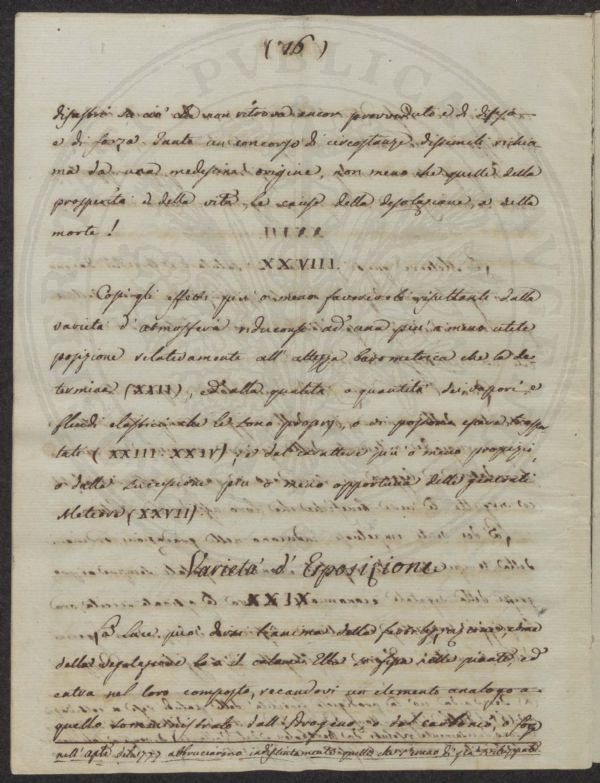 (76)
disastri da ciò che non ritrova ancor provveduto e di difesa
e di forza. Tanto un concorso di circostanze dissimili richia
ma da una medesima origine, non meno che quelle della
prosperità e della vita, le cause della desolazione, e della
morte!
XXVIII.
Così gli effetti più o meno favorevoli risultanti dalla
varietà d'atmosfera riduconsi ad una più o meno utile
posizione relativamente all'altezza barometrica che la de-
termina (XXII), e dalla qualità o quantità dei vapori e
fluidi elastici che le sono proprj, o vi possono essere traspor
tati (XXIII. XXIV), e dal carattere più o meno propizio,
o dalla successione più o meno opportuna delle generali
Meteore (XXVII).
Varietà d'Esposizione
XXIX.
La Luce può dirsi l'anima della
della vegetazione Ella si fissa nelle piante, ed
entra nel loro composto, recandovi un elemento analogo a
quello somministrato dall'idrogeno, o dal carbonio,
nell'Apte 1777 abbruciarono indistintamente quello